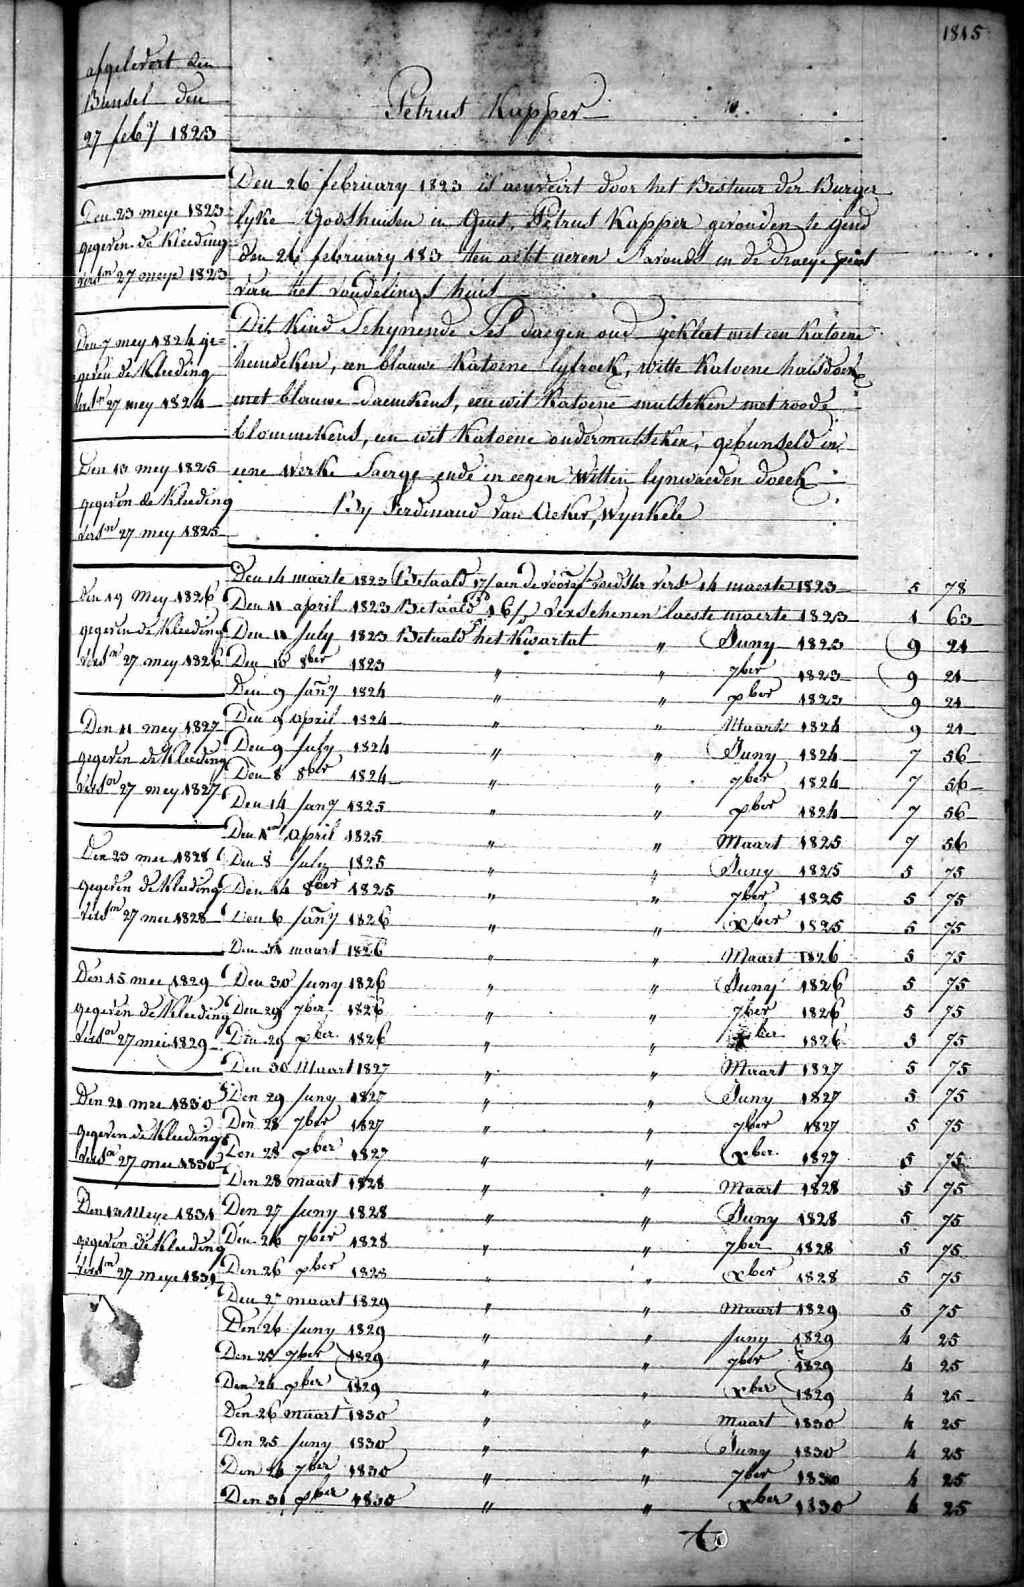 1815
afgelevert den
Bunsel den
27 feb.y 1823
Petrus Kapper
Den 26 february 1823 is aenveirt door het Bestuur der Burger
lyke Godshuisen in Gent, Petrus Kapper gevonden te gend
den 26 february 183 ten acht ueren S'avonds in de draeye
van het vondelings huis
Dit Kind Schynende Ses daegen oud gekleet met een Katoene
hemdeken, een blauwe Katoene lyfrock, witte Katoene halsdoek
met blauwe daemkens, een wit Katoene mutseken met roode
blommekens, een wit Katoene ondermutseken, gebunseld in
eene Werke Saerge ende in eegen Witten lynwaeden doeck
By Ferdinand Van Acker, Wynkele
Den 23 meye 1823
gegeven de Kleeding
vers.en 27 meye 1823
Den 7 mey 1824 ge=
geven de Kleeding
vers.en 27 mey 1824
Den 13 mey 1825
gegeven de Kleeding
vers.en 27 mey 1825
Den 19 Mey 1826
gegeven de Kleeding
vers.en 27 mey 1826
Den 11 mey 1827
gegeven de Kleeding
vers.en 27 mey 1827
Den 23 mei 1828
gegeven de Kleeding
vers.en 27 mei 1828
Den 15 mei 1829
gegeven de Kleeding
vers.en 27 mei 1829
Den 21 mei 1830
gegeven de Kleeding
vers.en 27 mei 1830
Den 13 Meye 1831
gegeven de Kleeding
vers.en 27 meye 1831
Den 14 maerte 1823 Betaald 17/ aen de voedster vers. 14 maerte 1823 5 78
Den 11 april 1823 Betaald 16/ Verschenen laeste maerte 1823 1 63
Den 11 July 1823 Betaald het Kwartal " Juny 1823 9 21
Den 10 8ber 1823 " " 7ber 1823 9 21
Den 9 Jany 1824 " xber 1823 9 21
Den 9 April 1824 " " Maart 1824 9 21
Den 9 July 1824 " " Juny 1824 7 56
Den 8 8ber 1824 " " 7ber 1824 7 56
Den 14 Jany 1825 " " xber 1824 7 56
Den 1en April 1825 " " Maart 1825 7 56
Den 8 July 1825 " " Juny 1825 5 75
Den 14 8ber 1825 " " 7ber 1825 5 75
Den 6 Jany 1826 " " xber 1825 5 75
Den 31 maart 1826 " " Maart 1826 5 75
Den 30 Juny 1826 " " Juny 1826 5 75
Den 29 7ber 1826 " " 7ber 1826 5 75
Den 29 xber 1826 " " xber 1826 5 75
Den 30 Maart 1827 " " Maart 1827 5 75
Den 29 Juny 1827 " " Juny 1827 5 75
Den 28 7ber 1827 " " 7ber 1827 5 75
Den 28 xber 1827 " " xber 1827 5 75
Den 28 maart 1828 " " Maart 1828 5 75
Den 27 Juny 1828 " " Juny 1828 5 75
Den 26 7ber 1828 " " 7ber 1828 5 75
Den 26 xber 1828 " " xber 1828 5 75
Den 27 maart 1829 " " Maart 1829 5 75
Den 26 Juny 1829 " " Juny 1829 4 25
Den 25 7ber 1829 " " 7ber 1829 4 25
Den 24 xber 1829 " " xber 1829 4 25
Den 26 maart 1830 " " Maart 1830 4 25
Den 25 Juny 1830 " " Juny 1830 4 25
Den 24 7ber 1830 " " 7ber 1830 4 25
Den 31 xber 1830 " " xber 1830 4 25